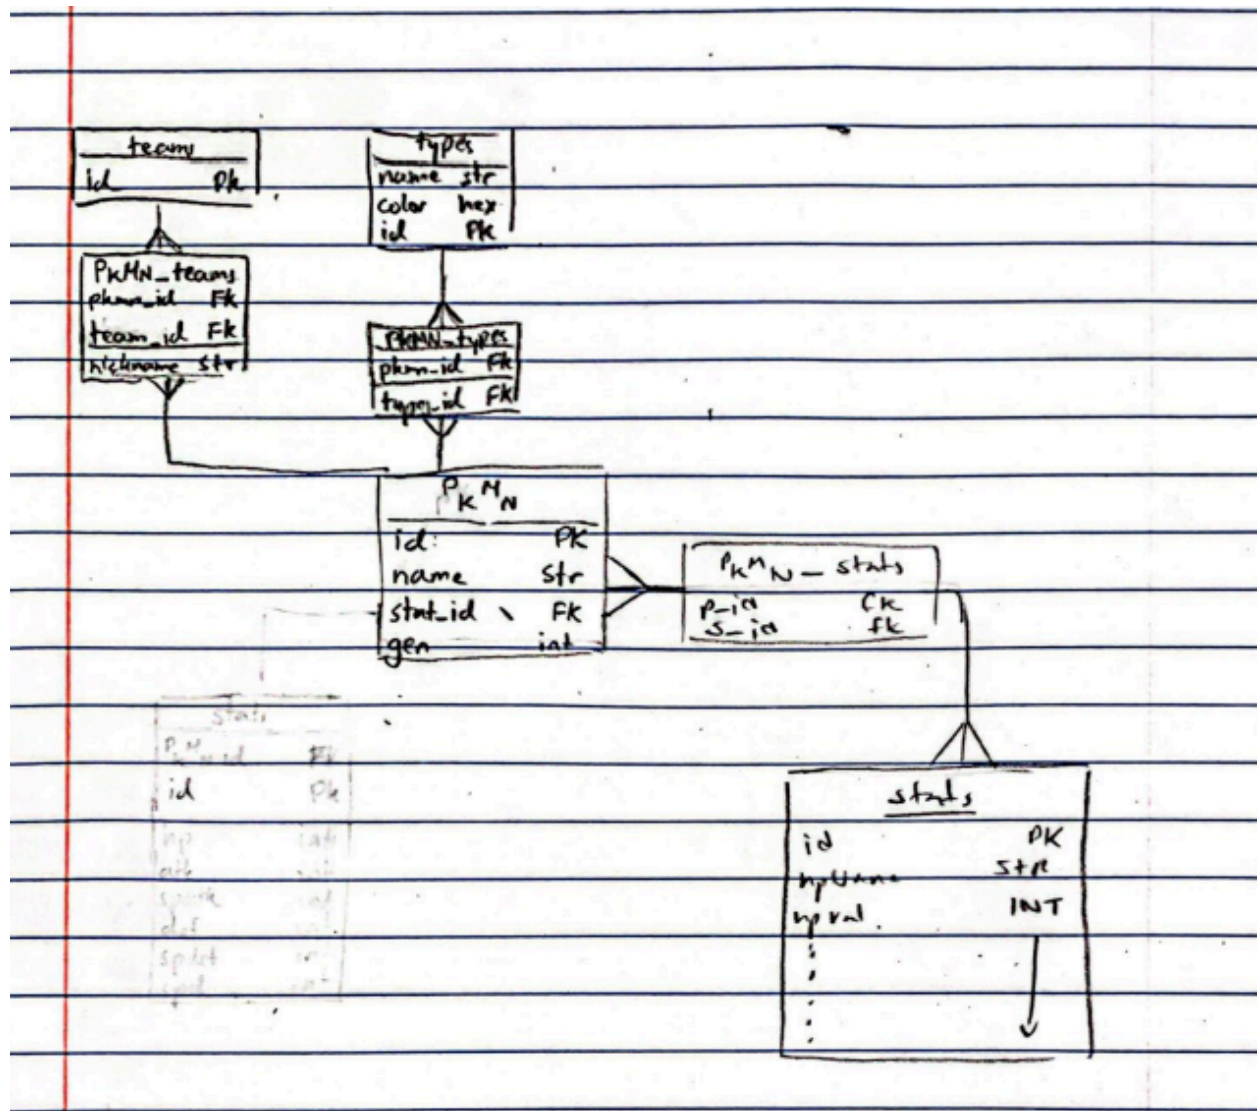 teams
id PK
types
name str
color hex
id PK
PKMN_teams
pkmn_id FK
team_id FK
nickname str
PKMN_types
pkmn_id FK
types_id FK
PKMN
id: PK
name str
stat_id FK
gen int
PKMN_stats
p_id FK
s_id fk
stats
PKMN_id FK
id PK
hp int
atk int
spatk int
def int
spdef int
spd int
stats
id PK
STR
hpval INT